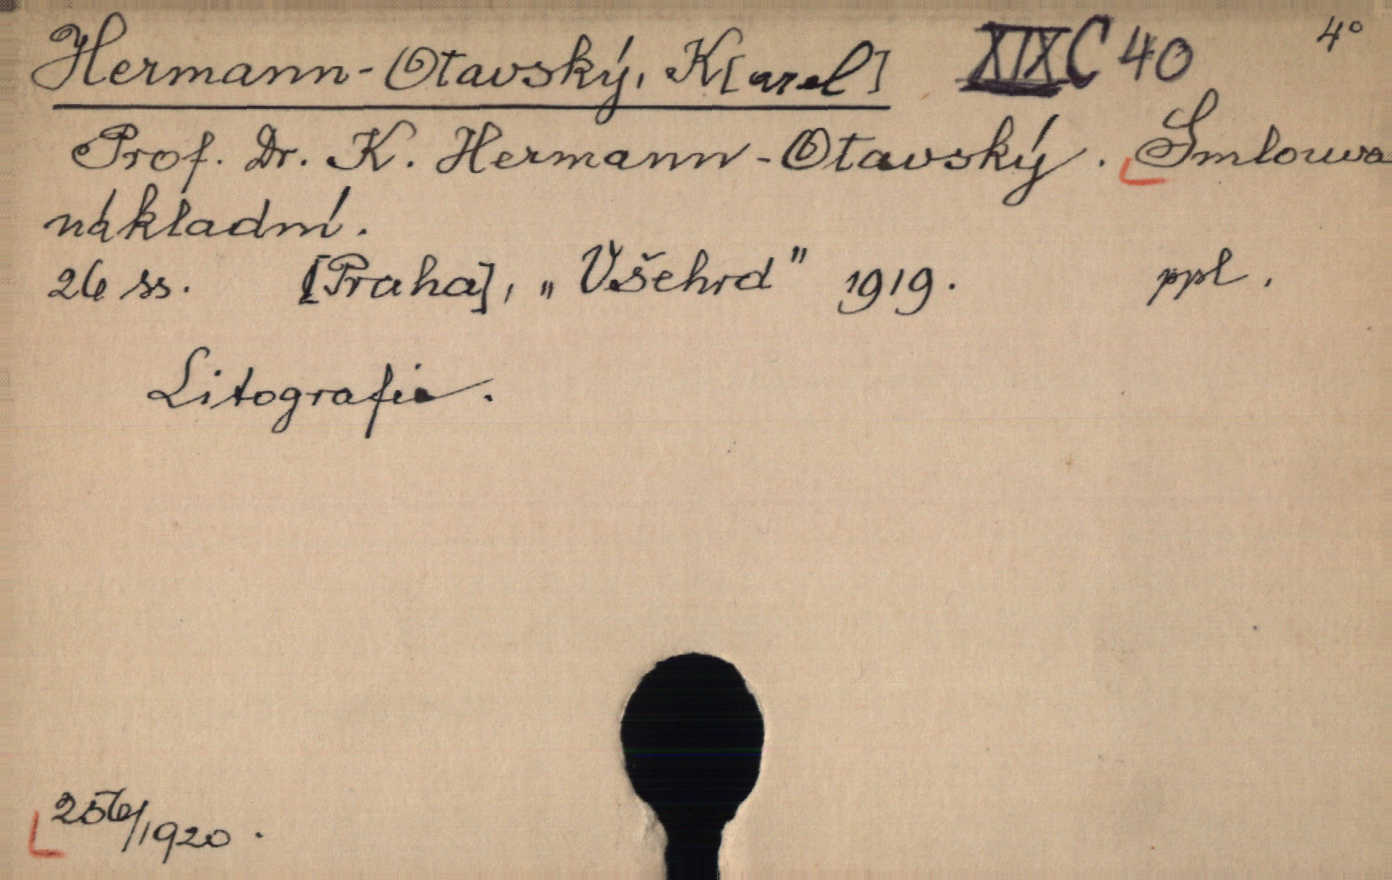 Hermann-Otavský, K[arel] XIX C 40 4°
Prof. Dr. K. Hermann-Otavský. Smlouva
nákladní.
26 ss. [Praha], „Všehrd" 1919. ppl.
Litografie.
256/1920.